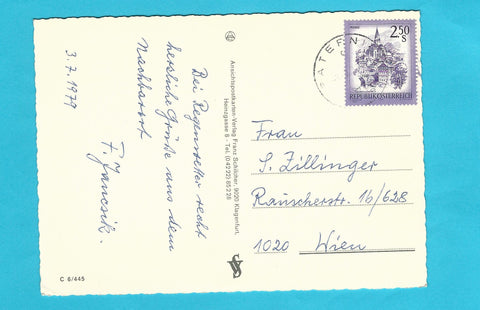 3.7.1979
Bei Regenwetter recht
herzliche Grüße aus dem
Nachbarort
F. Jancsik.
C 6/445
Ansichtspostkarten-Verlag Franz Schilcher, 9020 Klagenfurt,
Heinzgasse 6 - Tel. (04222)
SV
PATERN
2.50
S
REPUBLIK ÖSTERREICH
Frau
S. Zillinger
Rauscherstr. 16/628
1020 Wien